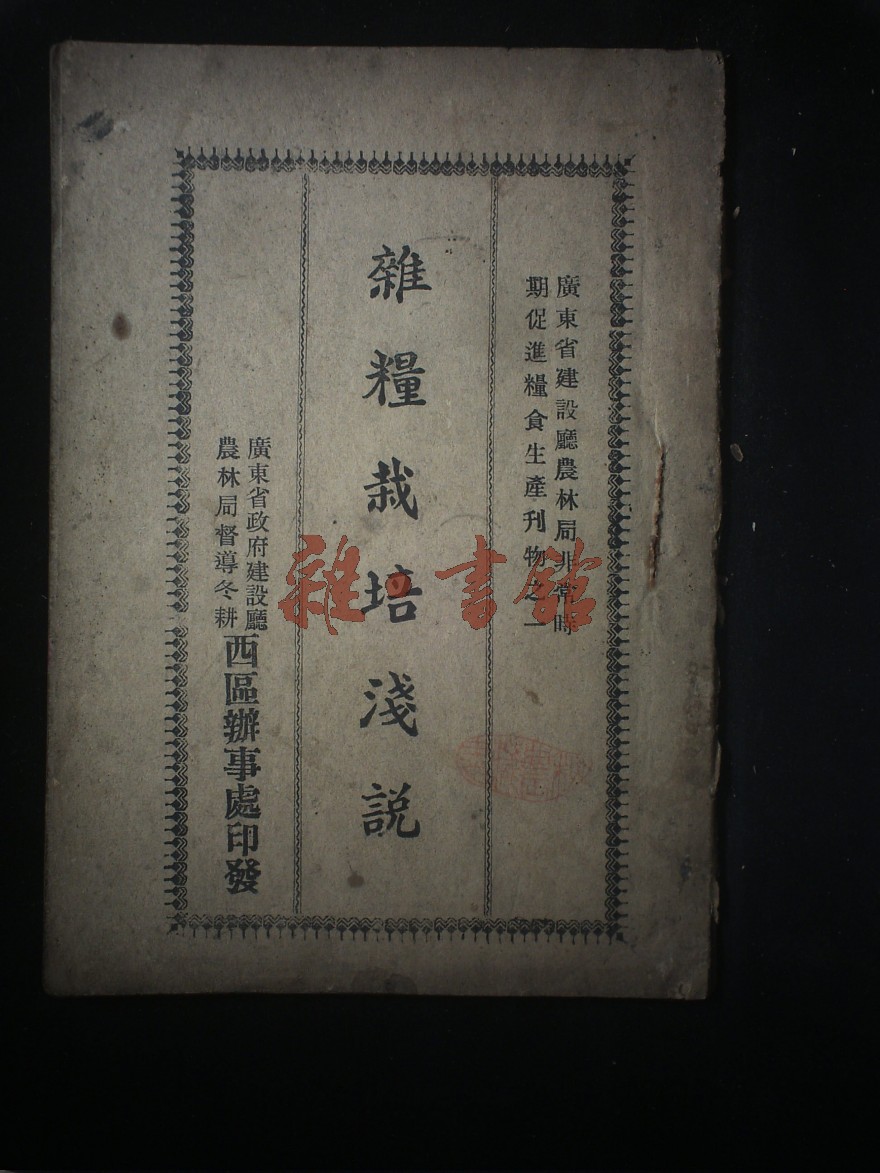 廣東省建設廳農林局非常時
期促進糧食生產刊物之一
雜糧栽培淺説
廣東省政府建設廳
農林局督導冬耕
西區辦事處印發
雜書館